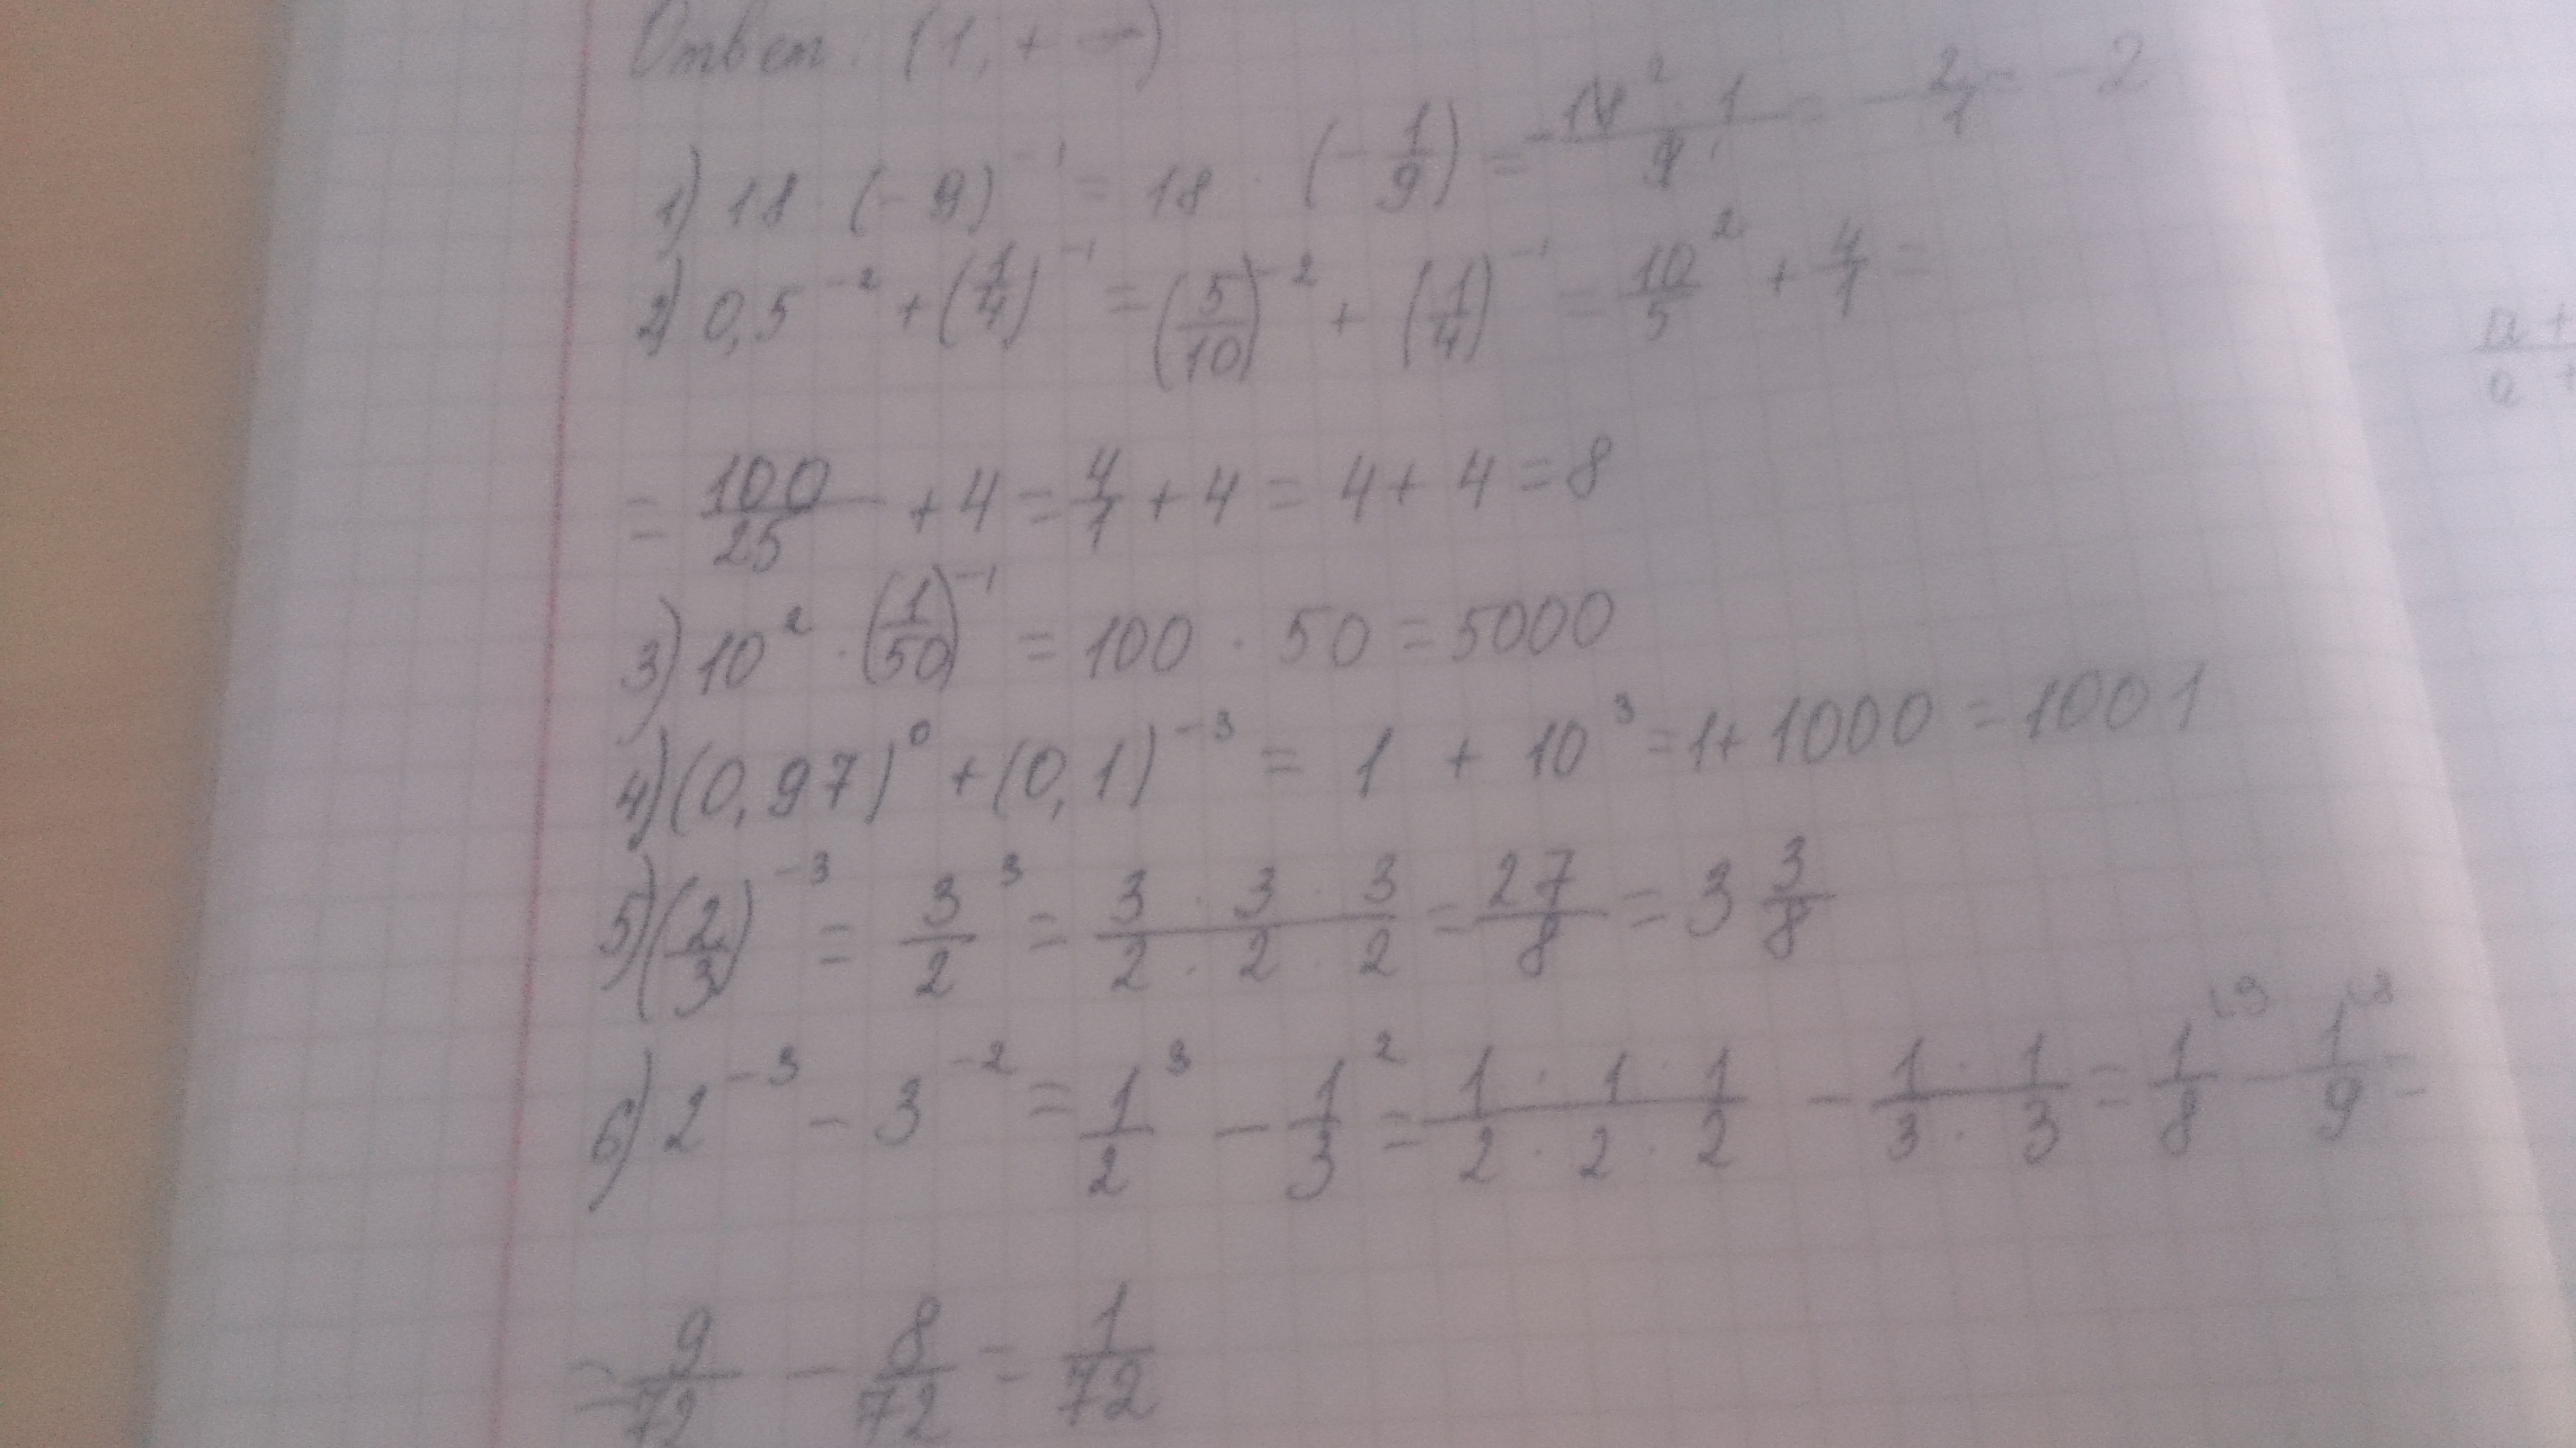 Ответ: (1, + ∞)
1) 18 · (-9)⁻¹ = 18 · (-1/9) = -18² · 1/9 = -2/1 = -2
2) 0,5⁻² + (1/4)⁻¹ = (5/10)⁻² + (1/4)⁻¹ = 10/5² + 4/1 =
= 100/25 + 4 = 4/1 + 4 = 4 + 4 = 8
3) 10² · (1/50)⁻¹ = 100 · 50 = 5000
4) (0,97)⁰ + (0,1)⁻³ = 1 + 10³ = 1 + 1000 = 1001
5) (2/3)⁻³ = 3/2³ = 3 · 3 · 3/2 · 2 · 2 = 27/8 = 3 3/8
6) 2⁻³ - 3⁻² = 1/2³ - 1/3² = 1 · 1 · 1/2 · 2 · 2 - 1 · 1/3 · 3 = 1/8 - 1/9 =
= 9/72 - 8/72 = 1/72